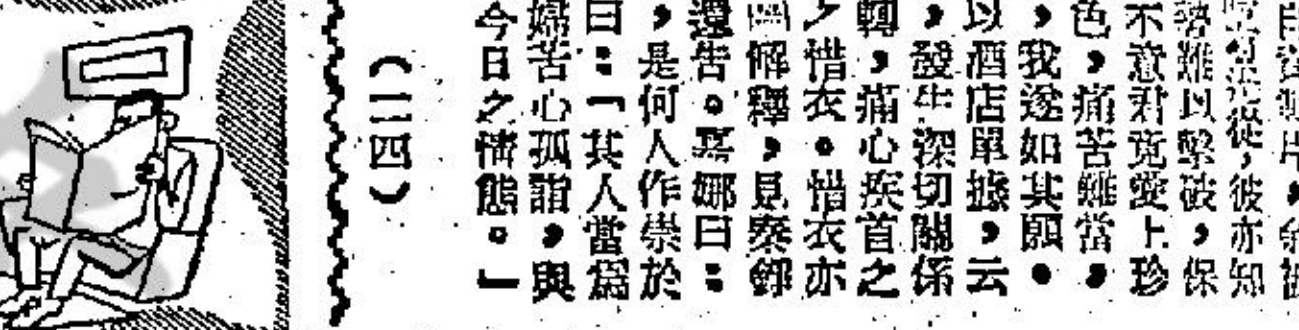 ,余被
從,彼亦知
勢難以擊破,保
不意君竟愛上珍
色,痛苦難當,
,我遂如其願。
以酒店單據,云
,發生深切關係
轉,痛心疾首之
惜衣。惜衣亦
解釋,見
還告。嘉娜曰:
,是何人作祟於
曰:「其人當爲
婦苦心孤詣,與
今日之情態。」
(二四)